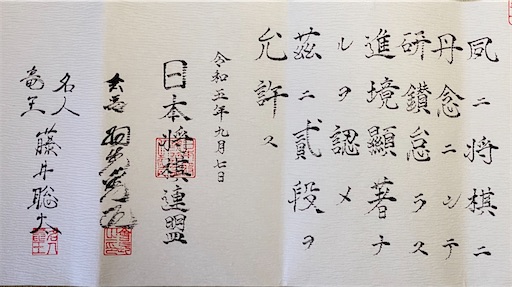 夙ニ将棋ニ
丹念ニシテ
研鑽怠ラス
進境顯著ナ
ルヲ認メ
茲ニ貳段ヲ
允許ス
令和五年九月七日
日本将棋連盟
会長 羽生善治
名人
竜王
藤井聡太